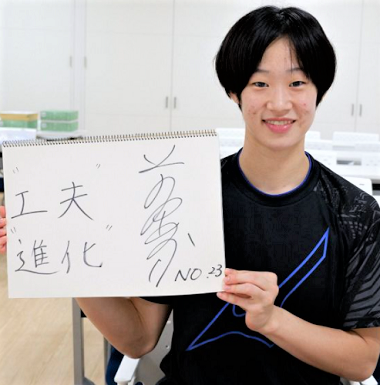 "工夫"
"進化"
NO.23